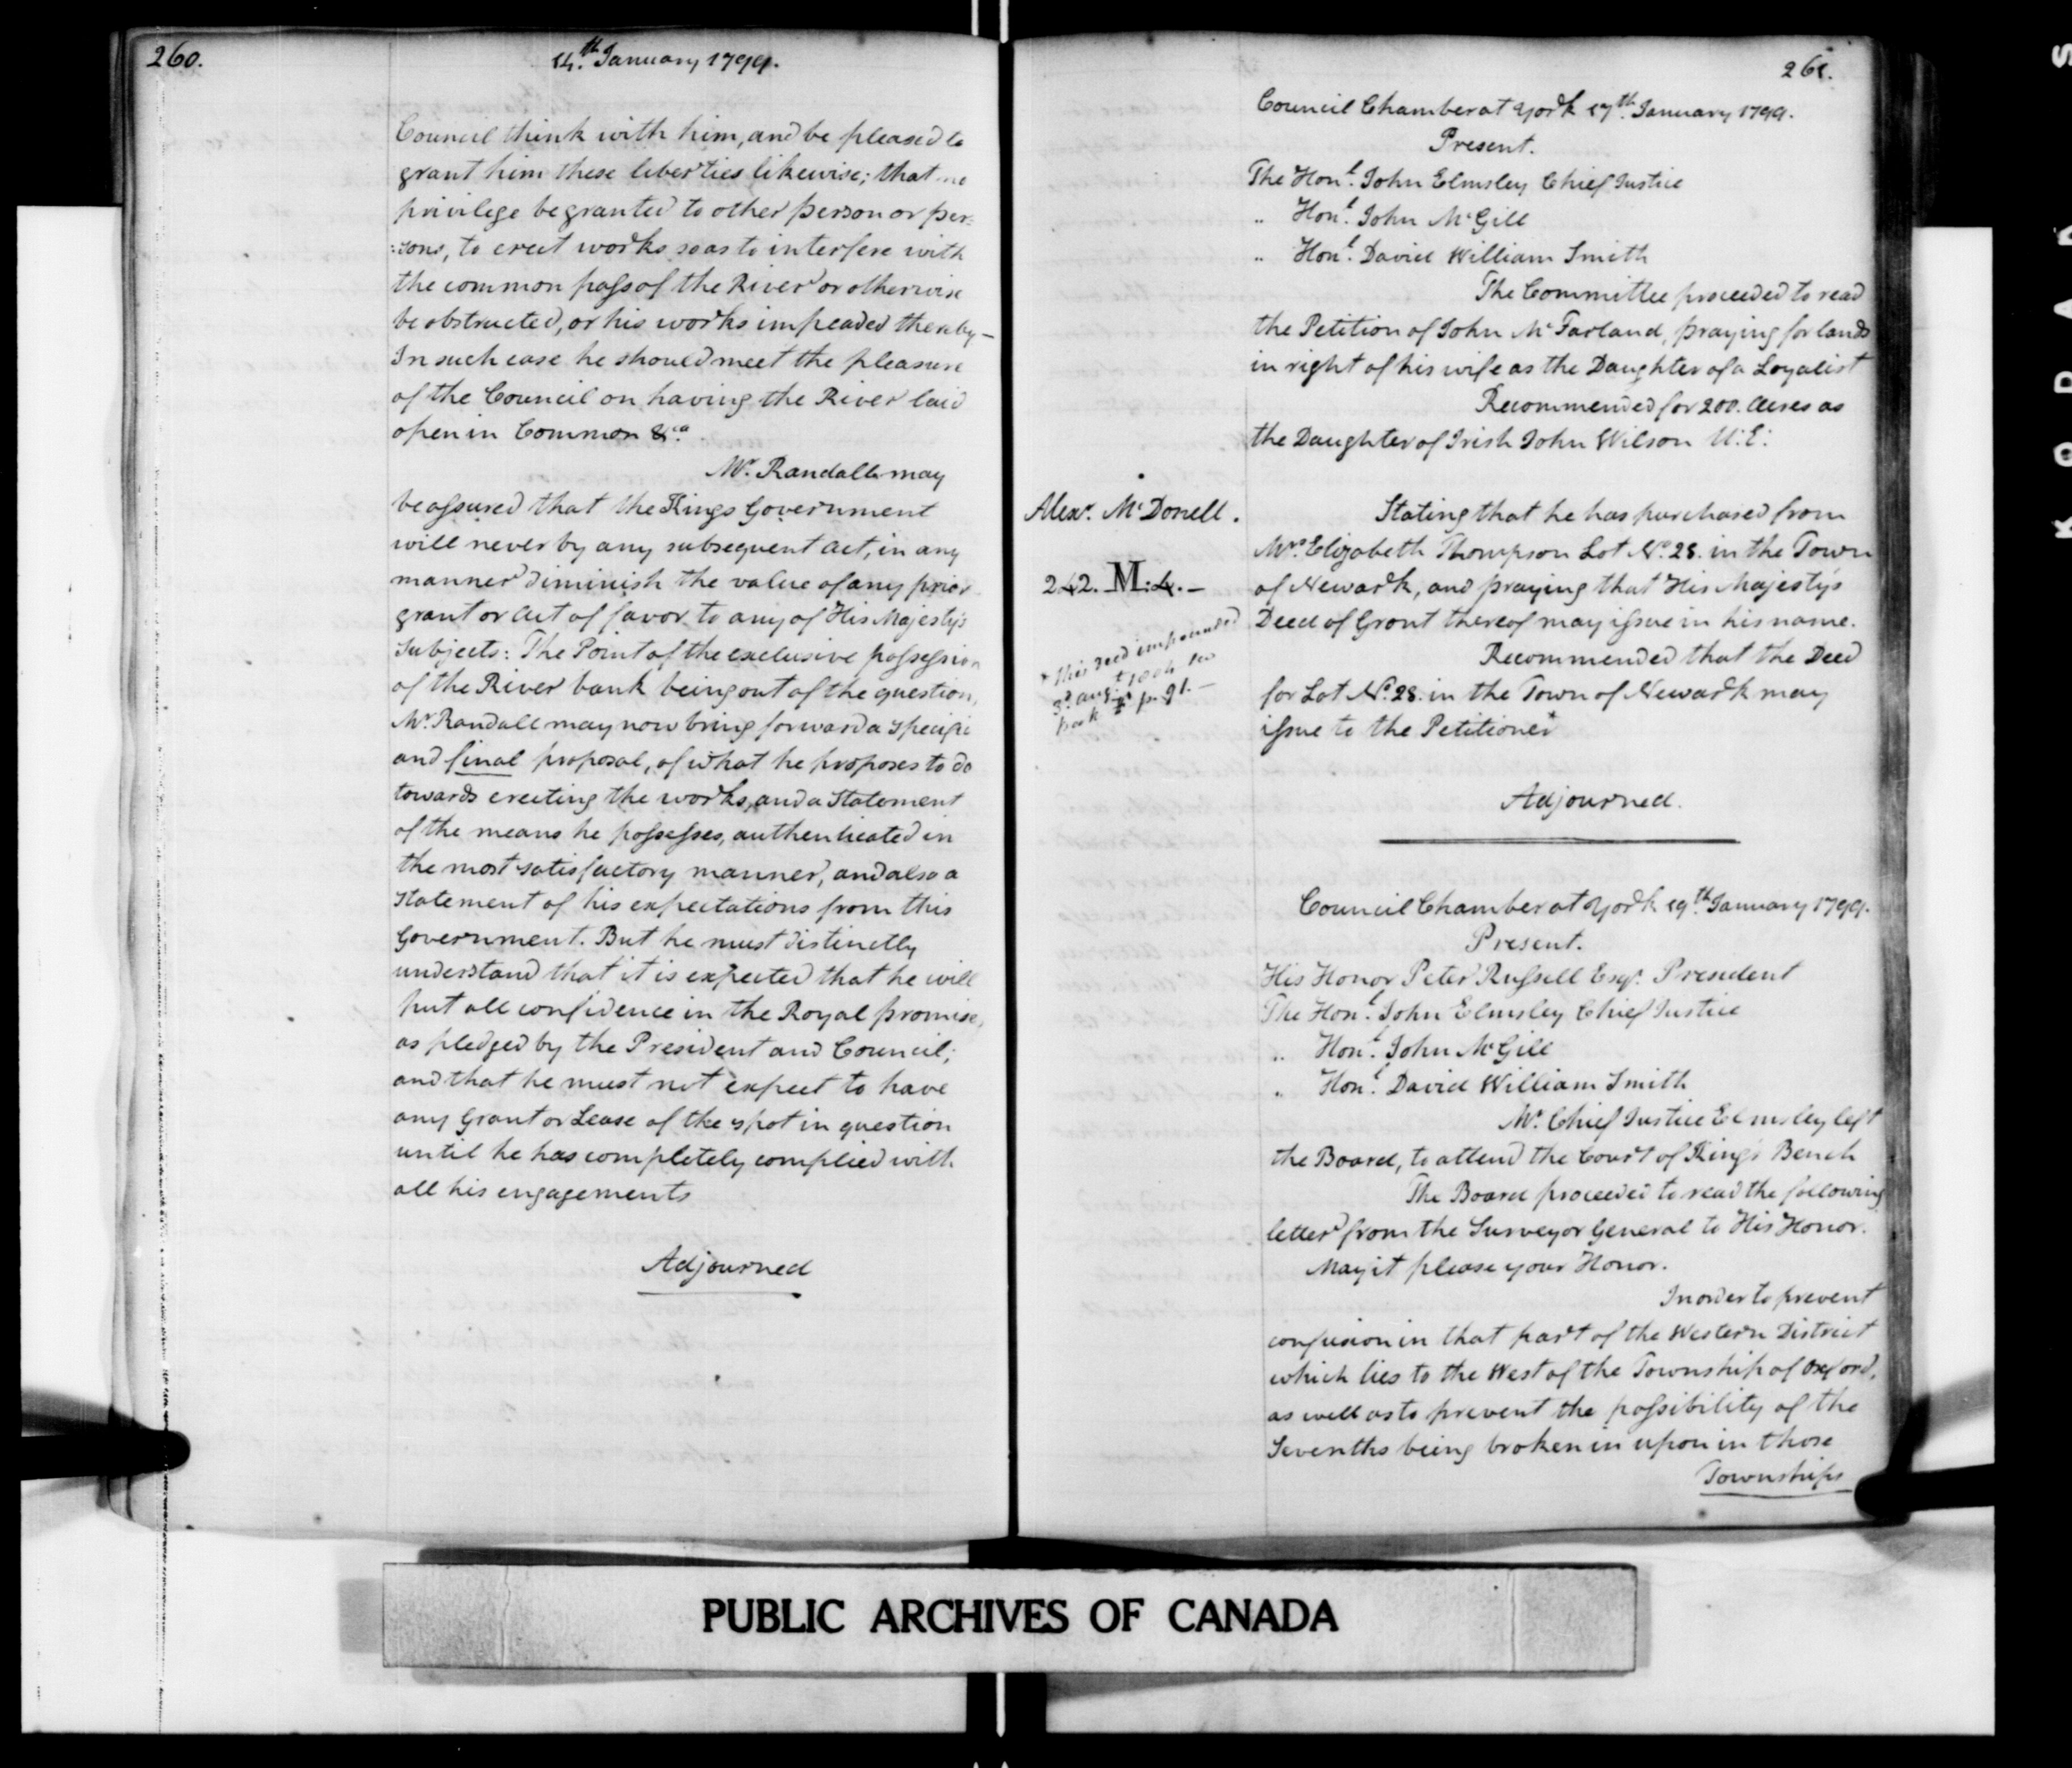 260.
14.th January 1799.
Council think with him, and be pleased to
grant him these liberties likewise; that no
privilege be granted to other person or per=
=sons, to erect works so as to interfere with
the common pass of the River or otherwise
be obstructed, or his works impeaded thereby—
In such case he should meet the pleasure
of the Council on having the River laid
open in Common &c.a
Mr. Randall may
be assured that the Kings Government
will never by any subsequent Act, in any
manner diminish the value of any prior
grant or Act of favor to any of His Majestys
Subjects: The Point of the exclusive possession
of the River bank being out of the question,
Mr. Randall may now bring forward a specific
and final proposal, of what he proposes to do
towards erecting the works, and a Statement
of the means he possesses, authenticated in
the most satisfactory manner, and also a
Statement of his expectations from this
Government. But he must distinctly
understand that it is expected that he will
put all confidence in the Royal promise,
as pledged by the President and Council;
and that he must not expect to have
any Grant or Lease of the spot in question
until he has completely complied with
all his engagements
Adjourned
261.
Council Chamber at York 17th. January 1799.
Present.
The Honl. John Elmsley Chief Justice
" Honl. John McGill
" Honl. David William Smith
The Committee proceeded to read
the Petition of John McFarland, praying for lands
in right of his wife as the Daughter of a Loyalist
Recommended for 200. Acres as
the Daughter of Irish John Wilson U.E.
Alexr. McDonell.
Stating that he has purchased from
Mrs. Elizabeth Thompson Lot No. 28. in the Town
242. M:4.—
of Newark, and praying that His Majesty's
Deed of Grant thereof may issue in his name.
* This deed impounded
3d. Augt.
book p. 91.—
Recommended that the Deed
for Lot No. 28. in the Town of Newark may
issue to the Petitioner*
Adjourned.
Council Chamber at York 19th. January 1799.
Present.
His Honor Peter Russell Esqr. President
The Honl. John Elmsley Chief Justice
" Honl. John McGill
" Honl. David William Smith
Mr. Chief Justice Elmsley left
the Board, to attend the Court of King's Bench
The Board proceeded to read the following
letter from the Surveyor General to His Honor.
May it please your Honor.
In order to prevent
confusion in that part of the Western District
which lies to the West of the Township of Oxford,
as well as to prevent the possibility of the
Sevenths being broken in upon in those
Townships
PUBLIC ARCHIVES OF CANADA